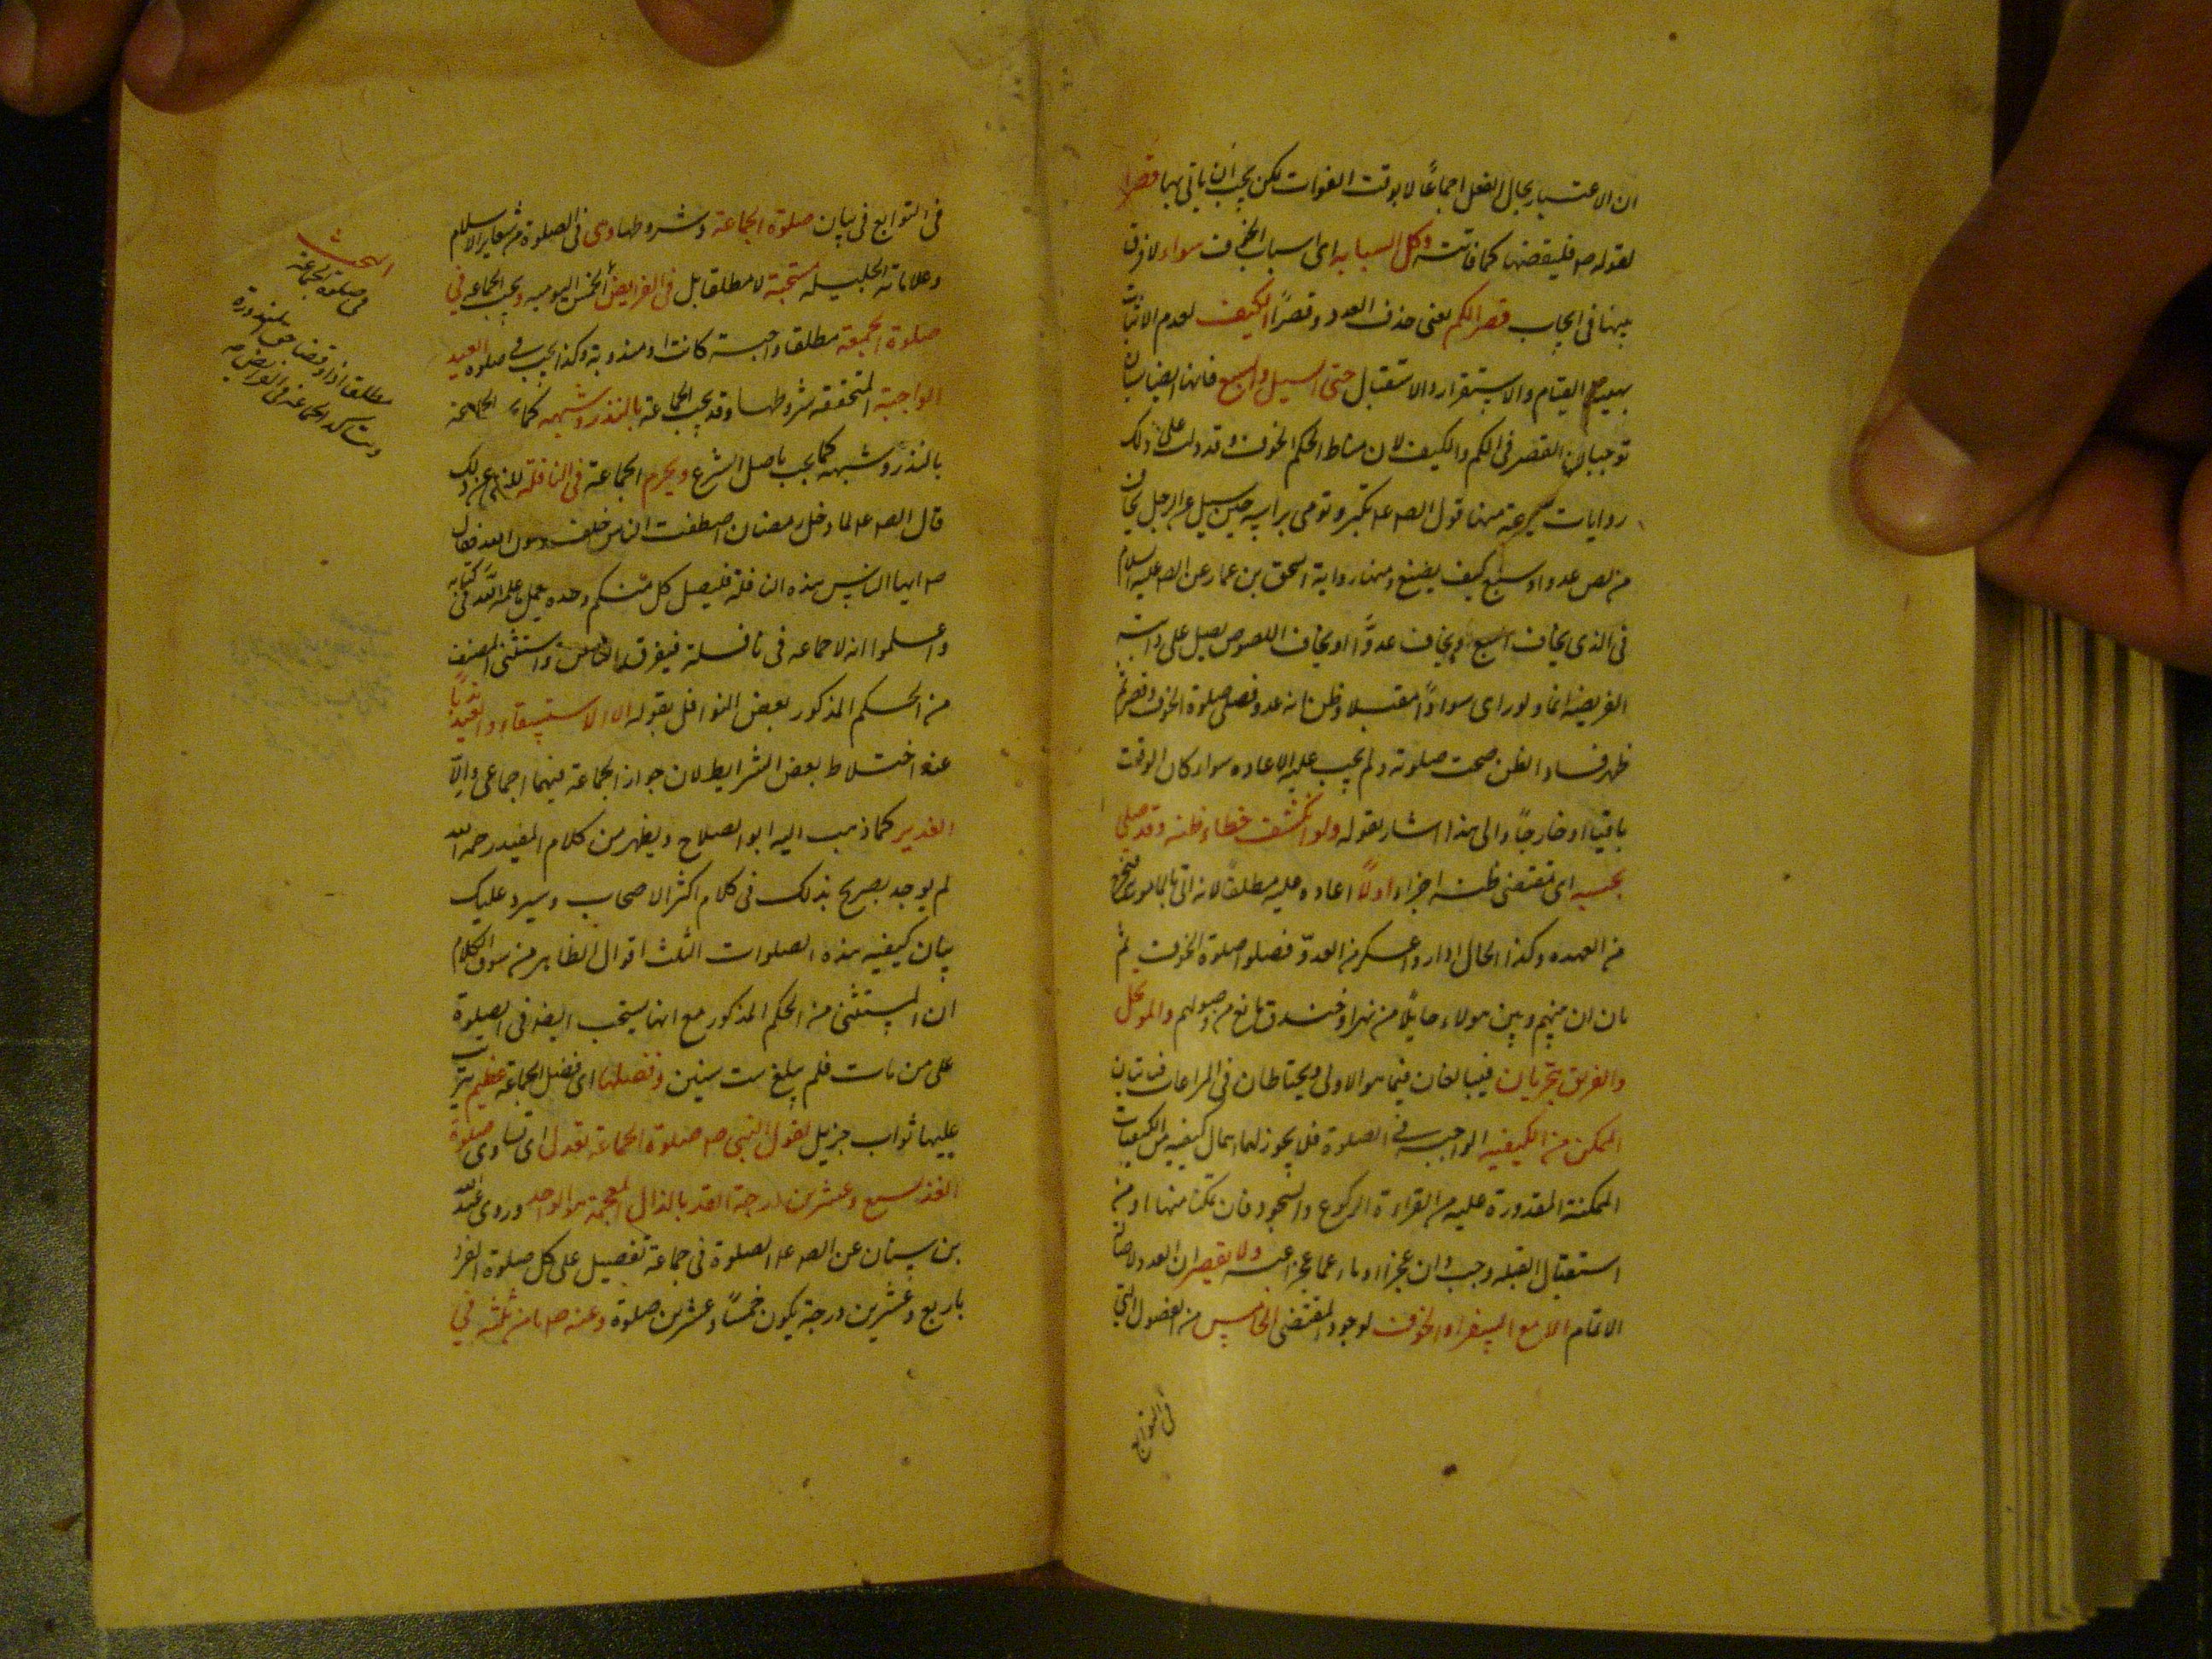 ان الاعتبار بحال الفعل اجماعًا لا بوقت الفوات لكن يجب ان ياتى بها قصرا
لقوله ص فليقضها كما فاتته وكل اسبابه اى اسباب الخوف سواء لا فرق
بينها فى ايجاب قصر الكم يعنى حذف العدد وقصرًا الكيف لعدم الاتيان
القيام والاستقرار والاستقبال حتى السيل والسبع فانهما ايضا
توجبان القصر فى الكم والكيف لان مناط الحكم الخوف وقد دلت على ذلك
روايات منها قول الص عه تكبر وتومى براسه حين سيل عن الرجل يخاف
من لص عدو او سبع كيف يصنع ومنها رواية اسحق بن عمار عن الص عليه السلام
فى الذى يخاف السبع او يخاف عدوًّا او يخاف اللصوص يصلى على دابته
الفريضه ايماء ولو راى سوادًا مقبلا وظن انه عدو فصلى صلوة الخوف وقصر ثم
ظهر فساد الظن صحت صلوته ولم يجب عليه الاعاده سواء كان الوقت
باقيا او خارجًا والى هذا اشار بقوله ولو انكشف خطاء ظنه وقد صلى
بحسبه اى بمقتضى ظنه اجزاء اولًا اعاده عليه مطلقا لانه اتى بالمامور فيخرج
من العهده وكذا الحال اذا راوا عسكر من العدوّ فصلوا صلوة الخوف ثم
بان ان بينهم وبين هولاء حايلًا من نهر او خندق مانع من وصولهم والموتحل
والغريق يتحريان فيبالغان فيما هو الاولى ويحتاطان فى المراعات فياتيان
الممكن من الكيفيه الواجبه فى الصلوة فلا يجوز لهما اهمال كيفيه من الكيفيات
الممكنة المقدورة عليه من القراءة والركوع والسجود فان تمكنا منها او من
استقبال القبله وجب وان عجزا اوماء عما عجزا عنه ولا يقصران العدد لاصالة
الاتمام الا مع السفر او الخوف لوجود المقتضى الخامس من الفصول التى
فى التوابع
فى التوابع فى بيان صلوة الجماعة وشروطها وهى فى الصلوة من شعاير الاسلام
وعلاماته الجليله مستحبة لا مطلقا بل فى الفرايض الخمس اليوميه ويجب الجماعه فى
صلوة الجمعة مطلقا واجبه كانت او مندوبة وكذا يجب فى صلوه العيد
الواجبة المتحققه شروطها وقد يجب الجماعة بالنذر وشبهه كما الجماعة
بالنذر وشبهه كما يجب باصل الشرع ويحرم الجماعة فى النافلة للنهى عن ذلك
قال الص عه لما دخل رمضان اصطفت الناس خلف رسول الله فقال
ص ايها الناس هذه النافلة فليصل كل منكم وحده وليعمل بما علمه الله فى كتابه
واعلموا انه لا جماعه فى نافلة فتفرق الناس واستثنى المصنف
من الحكم المذكور بعض النوافل بقوله الا الاستسقاء والعيد ندبًا
عند اختلاط بعض الشرايط لان جواز الجماعة فيهما اجماعى والا
الغدير كما ذهب اليه ابو الصلاح ويظهر من كلام المفيد رحمه الله
لم يوجد تصريح بذلك فى كلام اكثر الاصحاب وسيرد عليك
بيان كيفيه هذه الصلوات الثلث اقول الظاهر من سوق الكلام
ان المستثنى من الحكم المذكور مع انها يستحب ايضا فى الصلوة
على من مات فلم يبلغ ست سنين وفضلها اى فضل الجماعة عظيم يترتب
عليها ثواب جزيل لقول النبى ص صلوة الجماعة تعدل اى تساوى صلوة
الفذ بسبع وعشرين درجة الفذ بالذال المعجمة هو الواحد وروى عبد الله
بن سنان عن الص عه الصلوة فى جماعة تفضيل على كل صلوة الفرد
باربع وعشرين درجة يكون خمسًا وعشرين صلوة وعنه ص ما من ثلثه فى
البحث
فى صلوة الجماعة
مطلقا اذا وقضا حتى المنذورة
ويتاكد الجماعة فى الفرايض